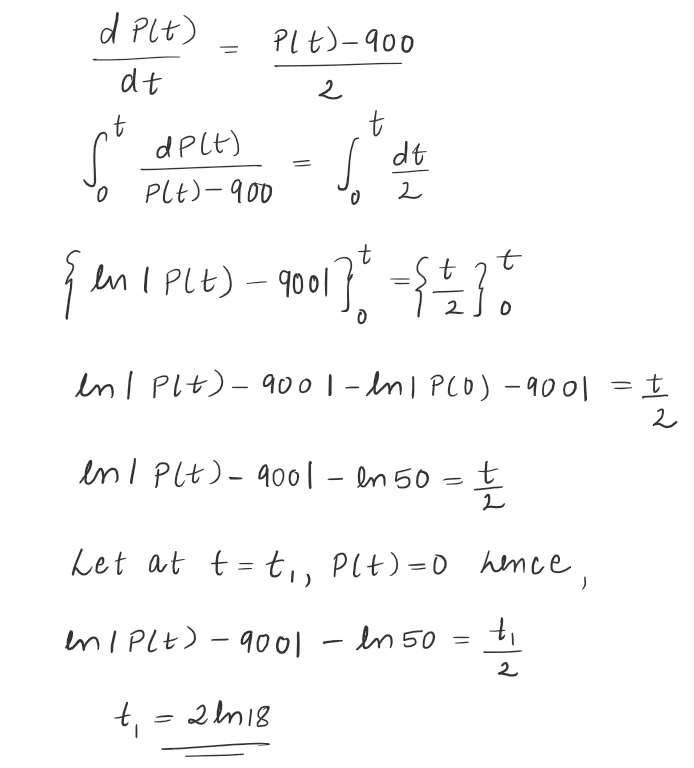 d P(t)/dt = P(t)-900/2
∫₀ᵗ dP(t)/P(t)-900 = ∫₀ᵗ dt/2
{ln|P(t)-900|}₀ᵗ = {t/2}₀ᵗ
ln|P(t)-900|-ln|P(0)-900| = t/2
ln|P(t)-900|-ln50 = t/2
Let at t=t₁, P(t)=0 hence,
ln|P(t)-900|-ln50 = t₁/2
t₁ = 2ln18